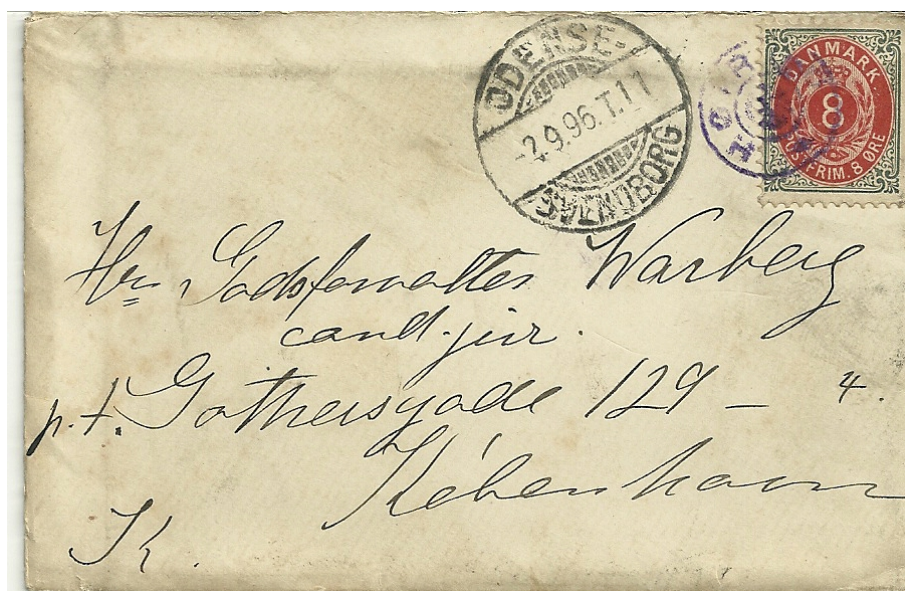 ODENSE-
2.9.96.T.11
SVENDBORG
DANMARK
8
POSTFRIM. 8 ØRE
Hr. Godsforvalter Warberg
cand. jur.
p. t. Gothersgade 129 - 4.
København
K.